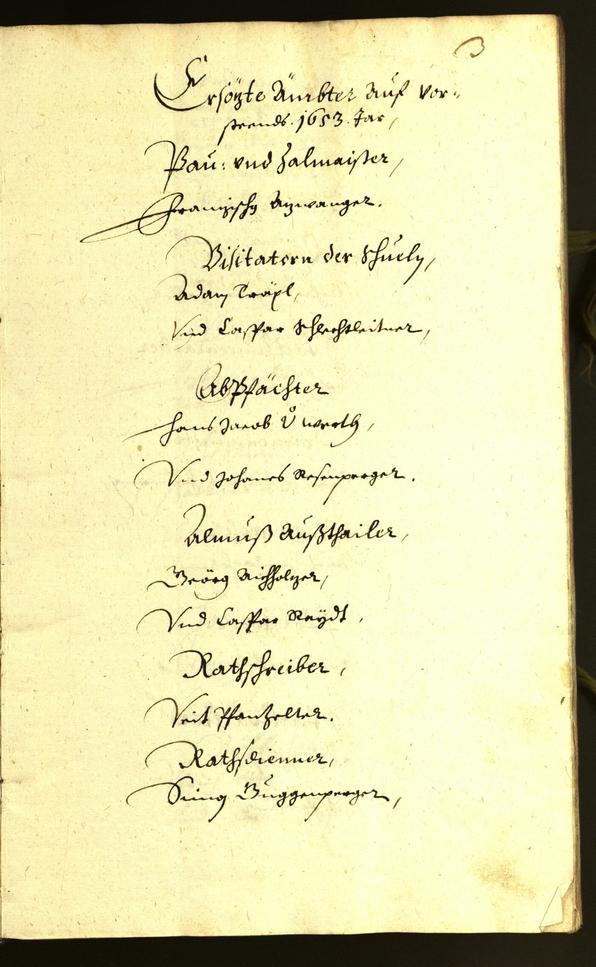 3
Ersözte Ämbter Auf vor-
steends. 1653. Jar,
Pau: vnd Zalmaister,
Franzischg Azwanger.
Visitatorn der Schueln,
Adam Träpl,
Vnd Caspar Schlechtleitner,
AbPfächter
Hans Jacob Ů werth,
Vnd Johanes Rosenperger.
Almuß Außthailer,
Geörg Aichholzer,
Vnd Caspar Raÿdt,
Rathschreiber,
Veit Pfanzelter.
Rathsdienner,
Simon Guggenperger,